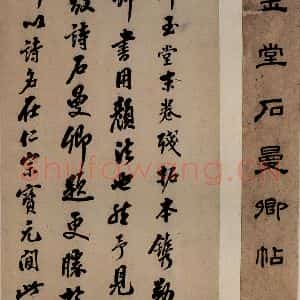 堂石曼卿帖
玉堂卷殘拓本鐫勒
書用顏法也然予見
詩石曼卿題更勝於
以詩名在仁宗寶元間此
shufawang.cn